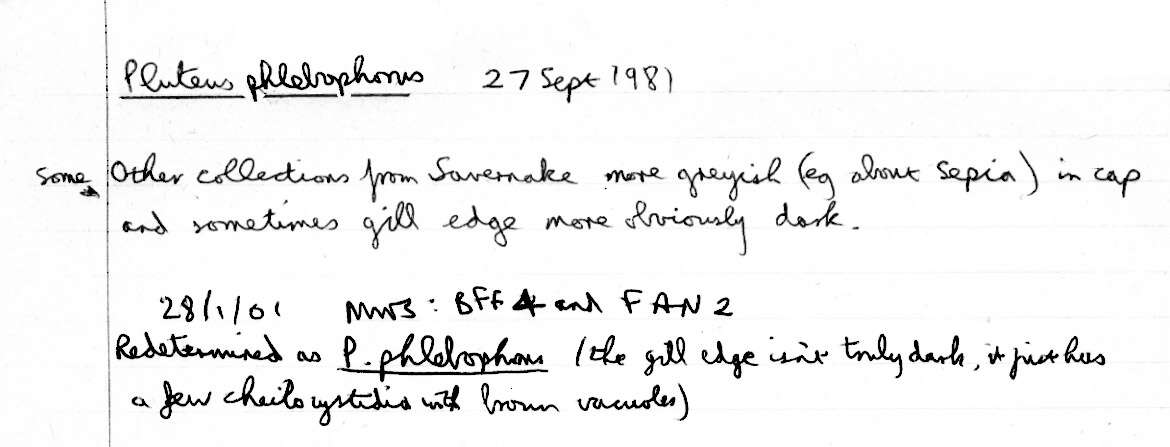 Pluteus phlebophorus 27 Sept 1981
some Other collections from Savernake more greyish (eg about sepia) in cap
and sometimes gill edge more obviously dark.
28/1/01 MWS: BFF4 and FAN2
Redetermined as P. phlebophorus (the gill edge isn't truly dark, it just has
a few cheilocystidia with brown vacuoles)